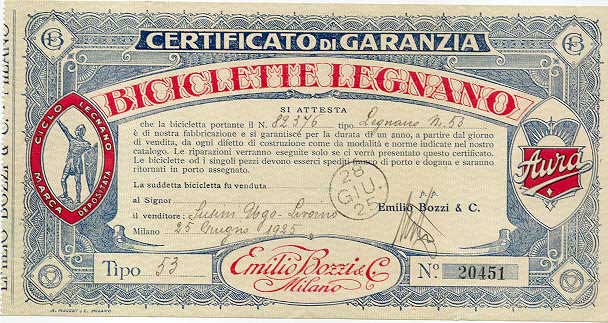 CERTIFICATO DI GARANZIA
BICICLETTE LEGNANO
SI ATTESTA
che la bicicletta portante il N. 82376 tipo Legnano N. 53
è di nostra fabbricazione e si garantisce per la durata di un anno, a partire dal giorno
di vendita, da ogni difetto di costruzione come da modalità e norme indicate nel nostro
catalogo. Le riparazioni verranno eseguite solo se ci verrà presentato questo certificato.
Le biciclette od i singoli pezzi devono esserci spediti franco di porto e dogana e saranno
ritornati in porto assegnato.
La suddetta bicicletta fu venduta
al Signor
il venditore: Ugo - Livorno
Milano 25 Giugno 1925
28
GIU.
25
Emilio Bozzi & C.
CICLO LEGNANO
MARCA DEPOSITATA
Aura
Tipo 53
Emilio Bozzi & C.
Milano
No 20451
EMILIO BOZZI & C. MILANO